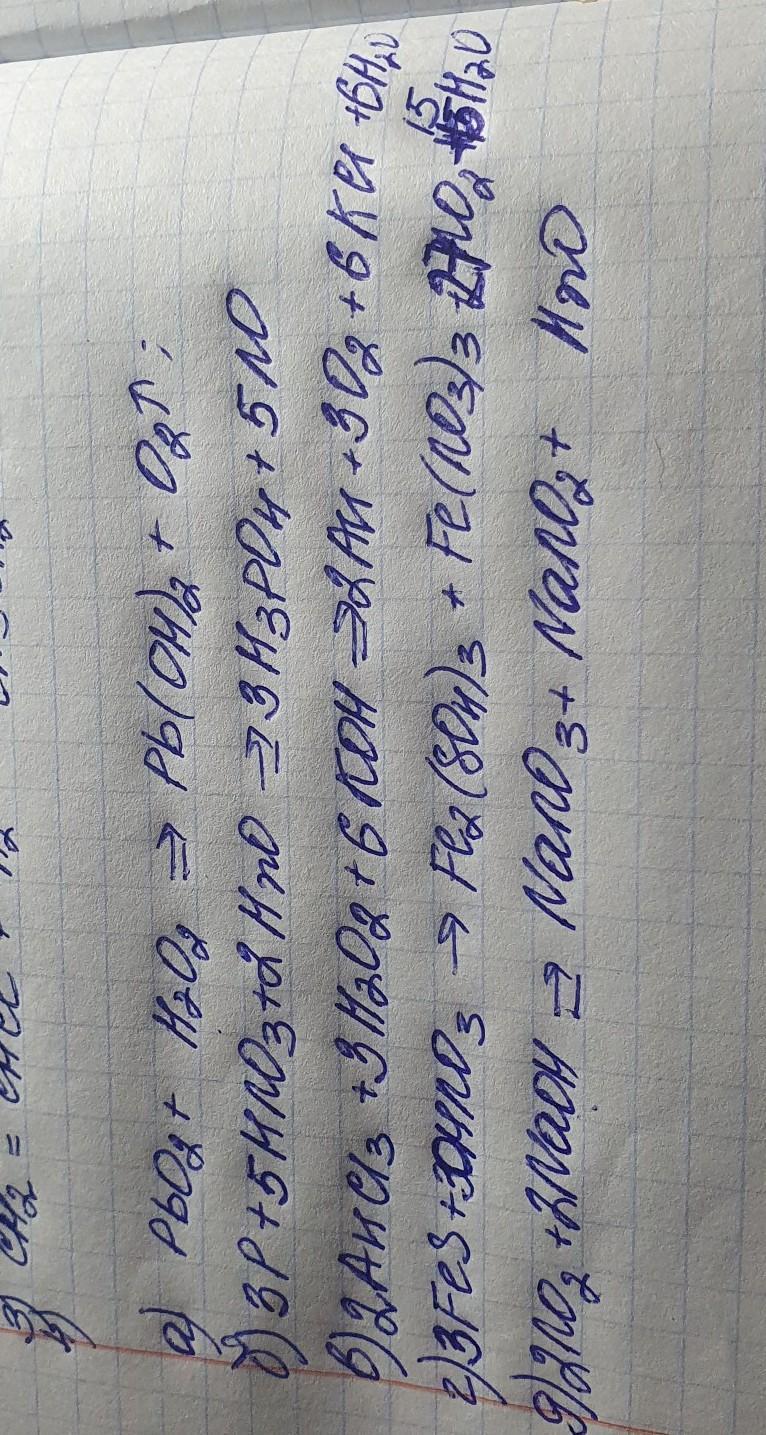 3) CH₂ = CHCl +
4)
а) PbO₂ + H₂O₂ ⇒ Pb(OH)₂ + O₂↑;
б) 3P + 5HNO₃ + 2H₂O ⇒ 3H₃PO₄ + 5NO
в) 2AuCl₃ + 3H₂O₂ + 6KOH ⇒ 2Au + 3O₂ + 6KCl + 6H₂O
г) 3FeS + 30HNO₃ → Fe₂(SO₄)₃ + Fe(NO₃)₃ + 27NO₂ + 15H₂O
д) 2NO₂ + 2NaOH ⇒ NaNO₃ + NaNO₂ + H₂O